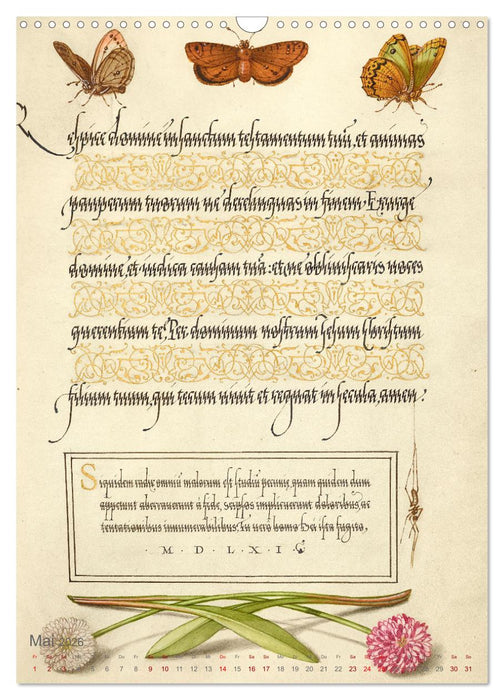 Respice domine in sanctum testamentum tuū, et animas
pauperum tuorum ne derelinquas in finem. Exurge
domine, et iudica causam tuā: et ne obliuiscaris uoces
querentium te. Per dominum nostrum Jesum Christum
filium tuum, qui tecum uiuit et regnat in secula, amen.
Siquidem radix omniū malorum est studiū pecunię, quam quidem dum
appetunt aberrauerunt à fide, seipsos implicuerunt doloribus, ac
tentationibus innumerabilibus. Tu uero homo Dei ista fugito,
· M · D · L · X · I
Mai 2026
Fr Sa So Mo Di Mi Do Fr Sa So Mo Di Mi Do Fr Sa So Mo Di Mi Do Fr Sa So Mo Di Mi Do Fr Sa So
1 2 3 4 5 6 7 8 9 10 11 12 13 14 15 16 17 18 19 20 21 22 23 24 25 26 27 28 29 30 31